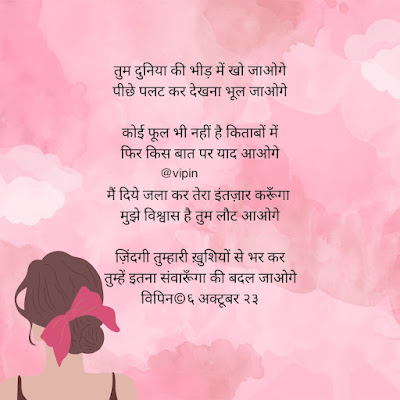 तुम दुनिया की भीड़ में खो जाओगे
पीछे पलट कर देखना भूल जाओगे
कोई फूल भी नहीं है किताबों में
फिर किस बात पर याद आओगे
@vipin
मैं दिये जला कर तेरा इंतज़ार करूँगा
मुझे विश्वास है तुम लौट आओगे
ज़िंदगी तुम्हारी ख़ुशियों से भर कर
तुम्हें इतना संवारूँगा की बदल जाओगे
विपिन©६ अक्टूबर २३